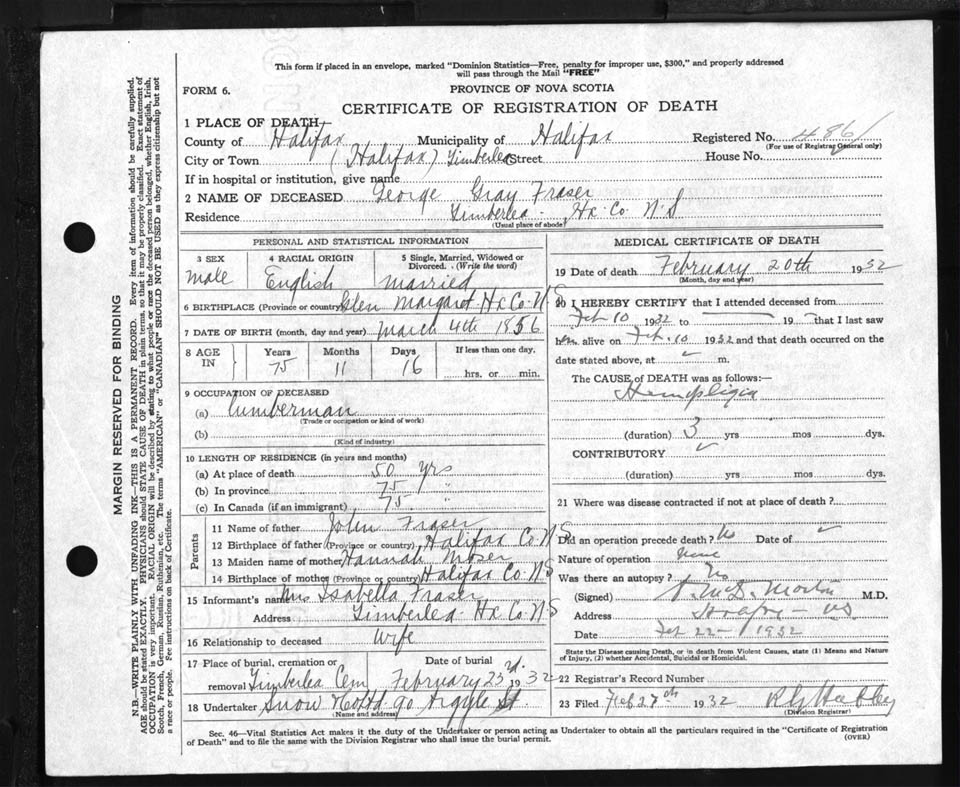 This form if placed in an envelope, marked "Dominion Statistics—Free, penalty for improper use, $300," and properly addressed
will pass through the Mail "FREE"
FORM 6. PROVINCE OF NOVA SCOTIA
CERTIFICATE OF REGISTRATION OF DEATH
1 PLACE OF DEATH
County of Halifax Municipality of Halifax Registered No. 486
(For use of Registrar General only)
City or Town (Halifax) Timberlea Street House No.
If in hospital or institution, give name
2 NAME OF DECEASED George Gray Fraser
Residence Timberlea - Hx. Co. N.S
(Usual place of abode)
PERSONAL AND STATISTICAL INFORMATION
3 SEX 4 RACIAL ORIGIN 5 Single, Married, Widowed or
Divorced. (Write the word)
male English married
6 BIRTHPLACE (Province or country) Glen Margaret. Hx Co. N.S
7 DATE OF BIRTH (month, day and year) March 4th 1856
8 AGE IN Years Months Days If less than one day,
75 11 16 hrs. or min.
9 OCCUPATION OF DECEASED
(a) Lumberman
(Trade or occupation or kind of work)
(b)
(Kind of industry)
10 LENGTH OF RESIDENCE (in years and months)
(a) At place of death 50 yrs
(b) In province 75 "
(c) In Canada (if an immigrant) 75 "
Parents
11 Name of father John Fraser
12 Birthplace of father (Province or country) Halifax Co. N.S
13 Maiden name of mother Hannah Moser
14 Birthplace of mother (Province or country) Halifax Co. N.S
15 Informant's name Mrs Isabella Fraser
Address Timberlea Hx Co N.S
16 Relationship to deceased Wife
17 Place of burial, cremation or Date of burial
removal Timberlea Cem February 23rd. 1932
18 Undertaker Snow 90 Argyle St.
(Name and address)
MEDICAL CERTIFICATE OF DEATH
19 Date of death February 20th 1932
(Month, day and year)
20 I HEREBY CERTIFY that I attended deceased from
Feb 10 1932 to 19 that I last saw
him alive on Feb. 10 1932 and that death occurred on the
date stated above, at m.
The CAUSE OF DEATH was as follows:—
Hemiplegia
(duration) 3 yrs mos dys.
CONTRIBUTORY
(duration) yrs mos dys.
21 Where was disease contracted if not at place of death?
Did an operation precede death? No Date of
Nature of operation none
Was there an autopsy? No
(Signed) Morton M.D.
Address Halifax - N.S
Date Feb 22 - 1932
State the Disease causing Death, or in death from Violent Causes, state (1) Means and Nature
of Injury, (2) whether Accidental, Suicidal or Homicidal.
22 Registrar's Record Number
23 Filed Feb 27th 1932
(Division Registrar)
Sec. 46—Vital Statistics Act makes it the duty of the Undertaker or person acting as Undertaker to obtain all the particulars required in the "Certificate of Registration
of Death" and to file the same with the Division Registrar who shall issue the burial permit. (OVER)
MARGIN RESERVED FOR BINDING
N.B.—WRITE PLAINLY WITH UNFADING INK—THIS IS A PERMANENT RECORD. Every item of information should be carefully supplied.
AGE should be stated EXACTLY. PHYSICIANS should STATE CAUSE OF DEATH in plain terms, so that it may be properly classified. Exact statement of
OCCUPATION is very important. RACIAL ORIGIN will be described by stating to what people or race the deceased person belonged, whether English, Irish,
Scotch, French, German, Russian, Ruthenian, etc. The terms "AMERICAN" or "CANADIAN" SHOULD NOT BE USED as they express citizenship but not
a race or people. Fee instructions on back of Certificate.